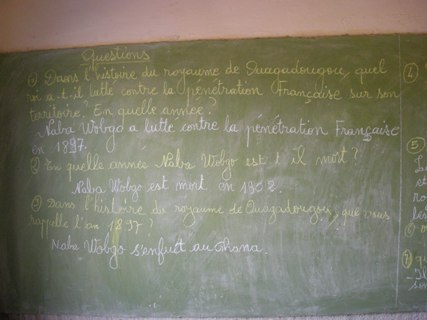 Questions
① Dans l'histoire du royaume de Ouagadougou, quel
roi a-t-il lutté contre la pénétration Française sur son
territoire ? En quelle année ?
Naba Wobgo a lutté contre la pénétration Française
en 1897.
② En quelle année Naba Wobgo est-il mort ?
Naba Wobgo est mort en 1902.
③ Dans l'histoire du royaume de Ouagadougou, que vous
rappelle l'an 1897 ?
Naba Wobgo s'enfuit au Ghana
④
⑤
et
⑥
⑦